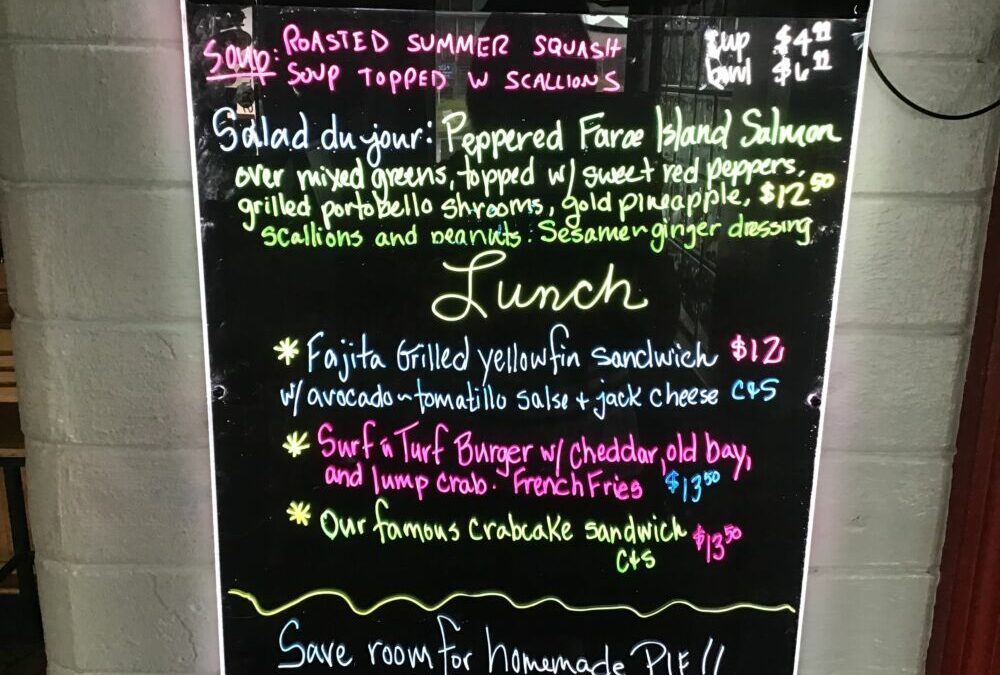 Soup: ROASTED SUMMER SQUASH cup $4.99
SOUP TOPPED W SCALLIONS bowl $6.99
Salad du jour: Peppered Faroe Island Salmon
over mixed greens, topped w/ sweet red peppers,
grilled portobello shrooms, gold pineapple, $12.50
scallions and peanuts. Sesame-ginger dressing
Lunch
* Fajita Grilled yellowfin sandwich $12
w/ avocado-tomatillo salse + jack cheese C+S
* Surf n Turf Burger w/ cheddar, old bay,
and lump crab. French Fries $13.50
* Our famous crabcake sandwich $13.50
C+S
Save room for homemade PIE!!